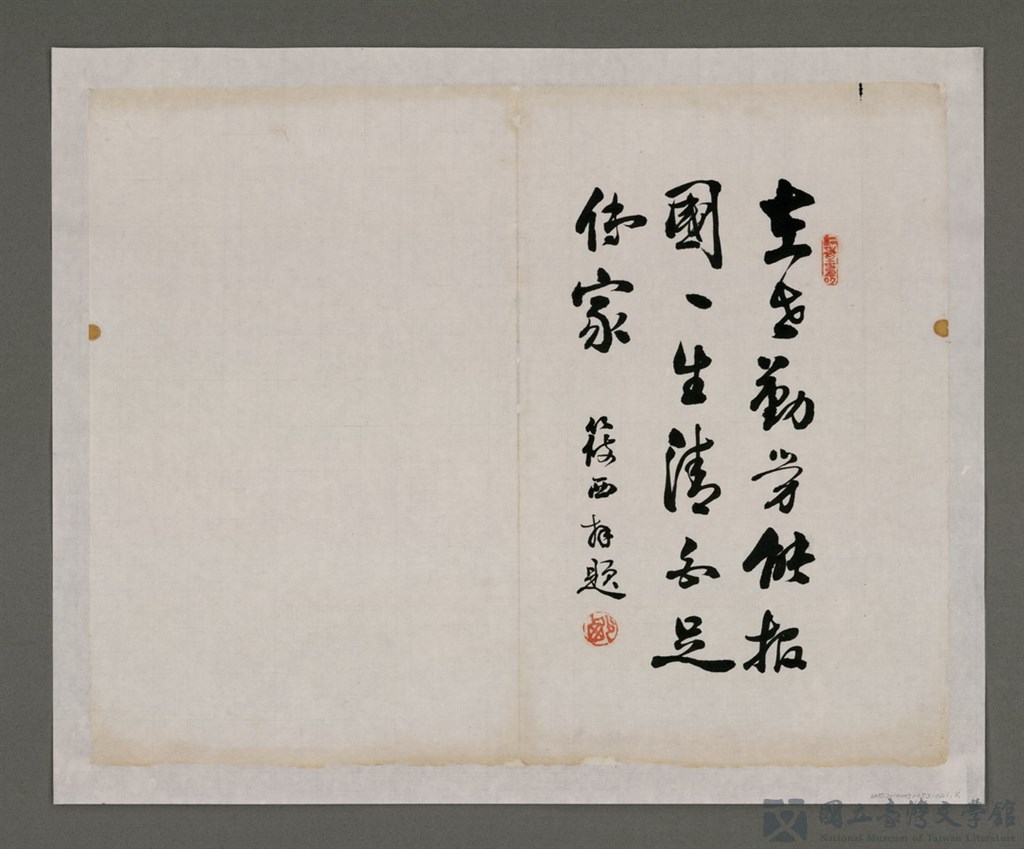 在世勤勞能報
國一生清白足
傳家
筱西拜題
國立臺灣文學館
National Museum of Taiwan Literature